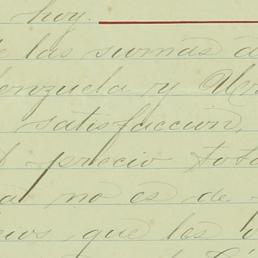 hoy.
de las sumas de
enezuela y
satisfaccion,
precio tota
no es de
que les